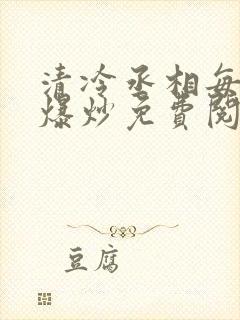 清冷丞相每
爆炒免費閱
豆腐